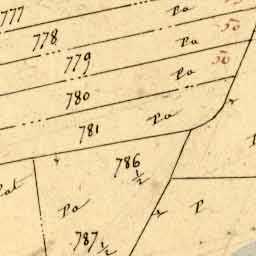 777 Pa
778 Pa
779 Pa
780 Pa
781 Pa
786 1/2
Pat
Pa P
787 1/2